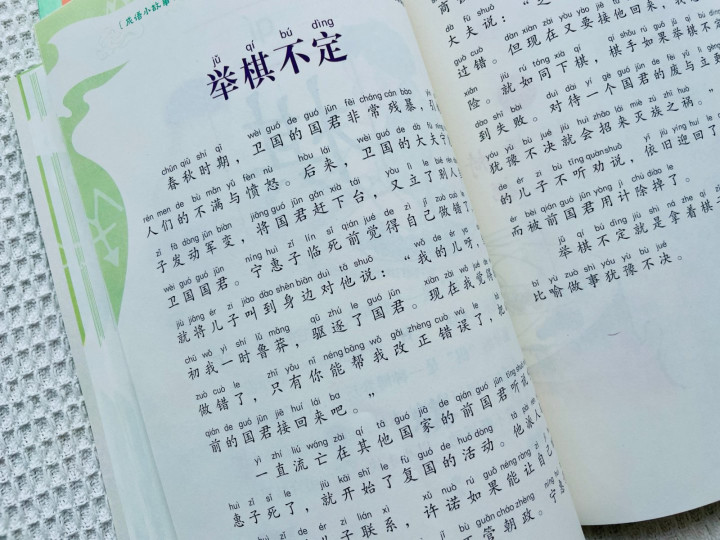 (成语小故事
jǔ qí bú dìng
举棋不定
chūn qiū shí qī wèi guó de guó jūn fēi cháng cán bào
春秋时期，卫国的国君非常残暴，
rén men de bù mǎn yǔ fèn nù hòu lái wèi guó de dà fū
人们的不满与愤怒。后来，卫国的大夫
zǐ fā dòng jūn biàn jiāng guó jūn gǎn xià tái yòu lì le bié
子发动军变，将国君赶下台，又立了别人
wèi guó guó jūn níng huì zǐ lín sǐ qián jué de zì jǐ zuò cuò
卫国国君。宁惠子临死前觉得自己做错了
jiù jiāng ér zi jiào dào shēn biān duì tā shuō wǒ de ér ya
就将儿子叫到身边对他说：“我的儿呀，
chū wǒ yì shí lǔ mǎng qū zhú le guó jūn xiàn zài wǒ jué
初我一时鲁莽，驱逐了国君。现在我觉得
zuò cuò le zhǐ yǒu nǐ néng bāng wǒ gǎi zhèng cuò wù le
做错了，只有你能帮我改正错误了，把
qián de guó jūn jiē huí lái ba
前的国君接回来吧。”
yì zhí liú wáng zài qí tā guó jiā de qián guó jūn tīng shuō
一直流亡在其他国家的前国君听说
huì zǐ sǐ le jiù kāi shǐ le fù guó de huó dòng tā pài
惠子死了，就开始了复国的活动。他派人
zǐ de ér zi lián xì xǔ nuò rú guǒ néng ràng zì
子的儿子联系，许诺如果能让自己
bù guǎn cháo zhèng níng
不管朝政。宁
大夫说：“
guò cuò dàn xiàn zài yòu yào jiē tā huí lái
过错。但现在又要接他回来，我
xiǎn jiù rú tóng xià qí qí shǒu rú guǒ jǔ qí bú
险。就如同下棋，棋手如果举棋不定
dào shī bài duì dài yí gè guó jūn de fèi yǔ lì
到失败。对待一个国君的废与立
yóu yù bù jué jiù huì zhāo lái miè zú zhī huò
犹豫不决就会招来灭族之祸。”
de ér zi bù tīng quàn shuō yī jiù yíng huí le
的儿子不听劝说，依旧迎回了
ér bèi qián guó jūn yòng jì chú diào le
而被前国君用计除掉了。
jǔ qí bú dìng jiù shì ná zhe qí
举棋不定就是拿着棋子
bǐ yù zuò shì yóu yù bù jué
比喻做事犹豫不决。